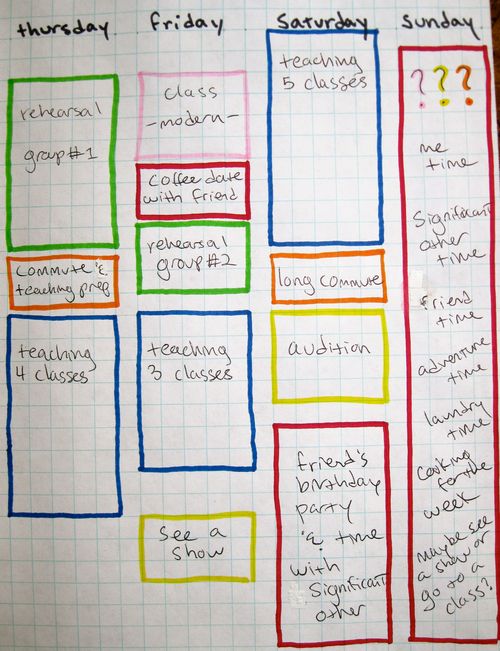 thursday
rehearsal
group #1
commute &
teaching prep
teaching
4 classes
friday
class
-modern-
coffee date
with friend
rehearsal
group #2
teaching
3 classes
see a
show
saturday
teaching
5 classes
long commute
audition
friend's
birthday
party
& time
with
significant
other
sunday
? ? ?
me
time
significant
other
time
friend
time
adventure
time
laundry
time
cooking
for the
week
maybe see
a show or
go to a
class?